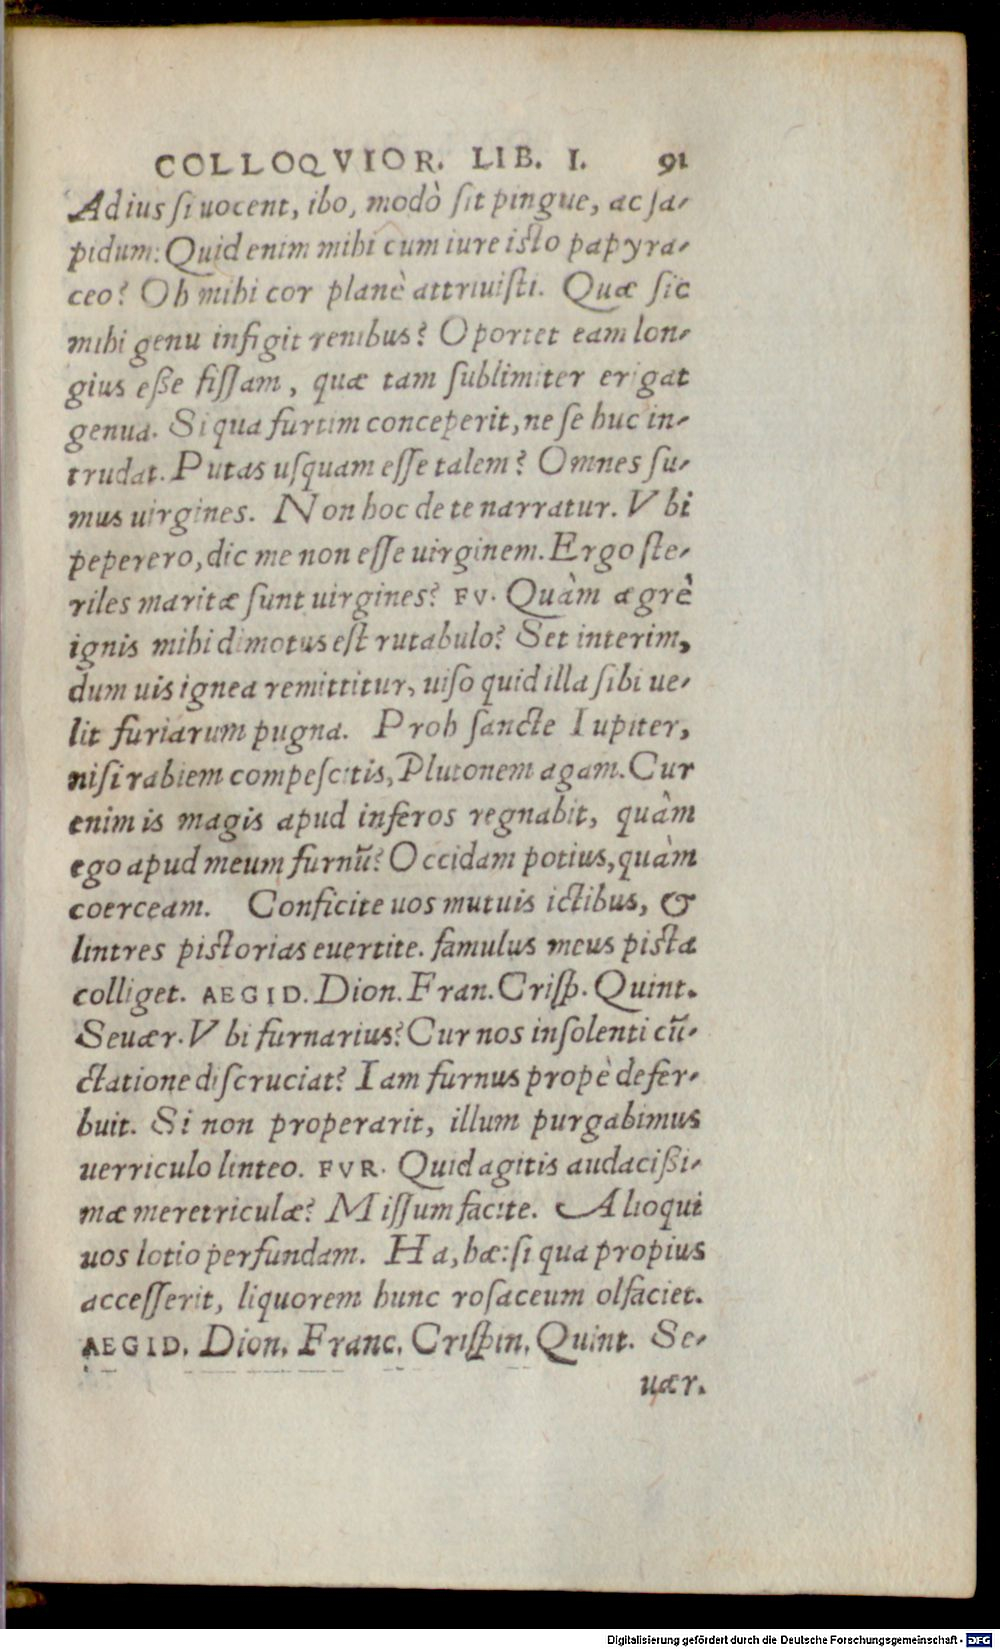 COLLOQVIOR. LIB. I. 91
Ad ius si uocent, ibo, modò sit pingue, ac sa-
pidum: Quid enim mihi cum iure isto papyra-
ceo? Oh mihi cor planè attriuisti. Quæ sic
mihi genu infigit renibus? Oportet eam lon-
gius eße fissam, quæ tam sublimiter erigat
genua. Si qua furtim conceperit, ne se huc in-
trudat. Putas usquam esse talem? Omnes su-
mus uirgines. Non hoc de te narratur. Vbi
peperero, dic me non esse uirginem. Ergo ste-
riles maritæ sunt uirgines? FV. Quàm ægrè
ignis mihi dimotus est rutabulo? Set interim,
dum uis ignea remittitur, uiso quid illa sibi ue-
lit furiarum pugna. Proh sancte Iupiter,
nisi rabiem compescitis, Plutonem agam. Cur
enim is magis apud inferos regnabit, quàm
ego apud meum furnũ? Occidam potius, quàm
coerceam. Conficite uos mutuis ictibus, &
lintres pistorias euertite. famulus meus pista
colliget. AEGID. Dion. Fran. Crisp. Quint.
Seuær. Vbi furnarius? Cur nos insolenti cũ-
ctatione discruciat? Iam furnus propè defer-
buit. Si non properarit, illum purgabimus
uerriculo linteo. FVR. Quid agitis audacißi-
mæ meretriculæ? Missum facite. Alioqui
uos lotio perfundam. Ha, hæ: si qua propius
accesserit, liquorem hunc rosaceum olfaciet.
AEGID. Dion. Franc. Crispin. Quint. Se-
uær.
Digitalisierung gefördert durch die Deutsche Forschungsgemeinschaft - DFG